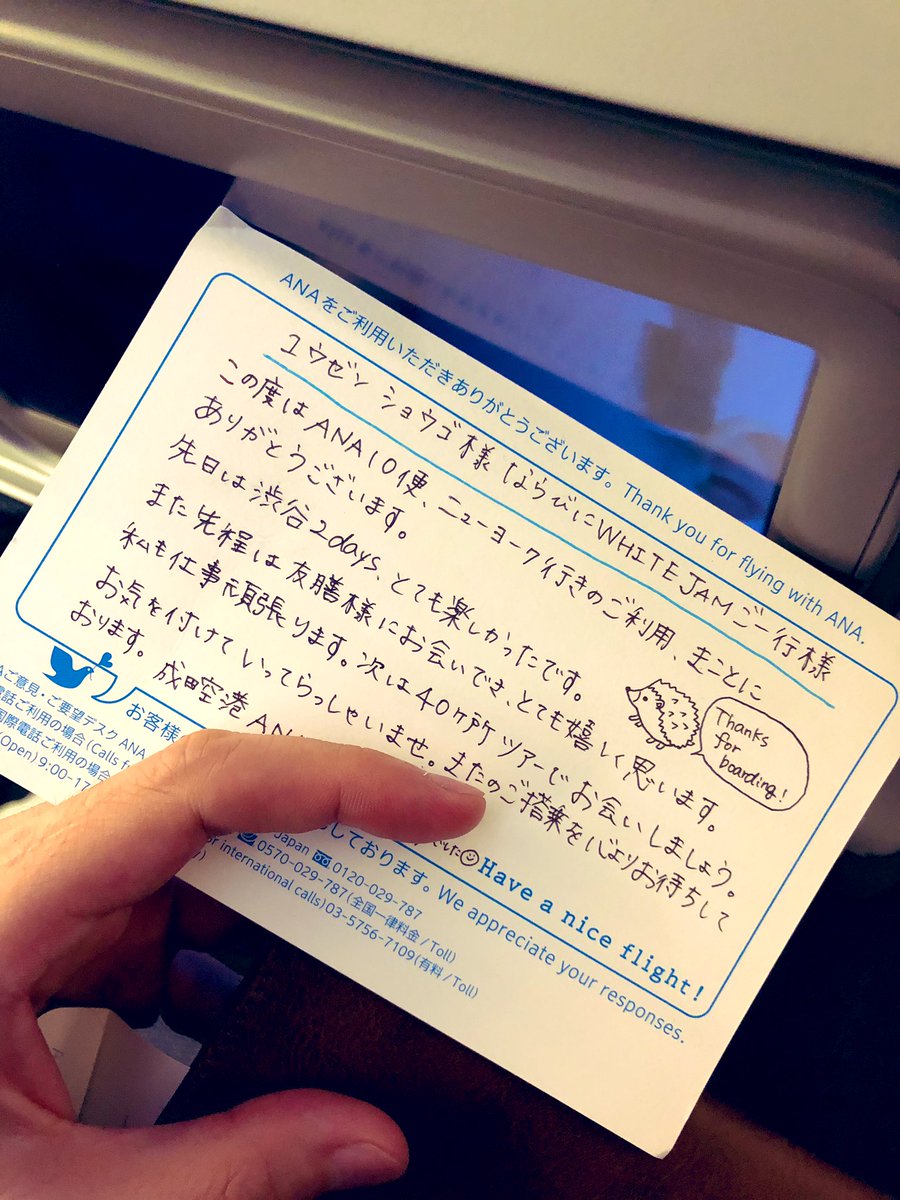 ANAをご利用いただきありがとうございます。Thank you for flying with ANA.
ユウゼン ショウゴ様 ならびにWHITE JAMご一行様
この度はANA10便、ニューヨーク行きのご利用、まことに
ありがとうございます。
先日は渋谷2days、とても楽しかったです。
また先程は友膳様にお会いでき、とても嬉しく思います。
私も仕事頑張ります。次は40ヶ所ツアーでお会いしましょう。
お気を付けていってらっしゃいませ。またのご搭乗を心よりお待ちして
おります。
成田空港 ANA
Thanks
for
boarding!
Have a nice flight!
お客様
しております。We appreciate your responses.
ご意見・ご要望デスク ANA
電話ご利用の場合(Calls f
japan 0120-029-787
国際電話ご利用の場合
or international 0570-029-787(全国一律料金/Toll)
(Open)9:00-17
international calls)03-5756-7109(有料/Toll)